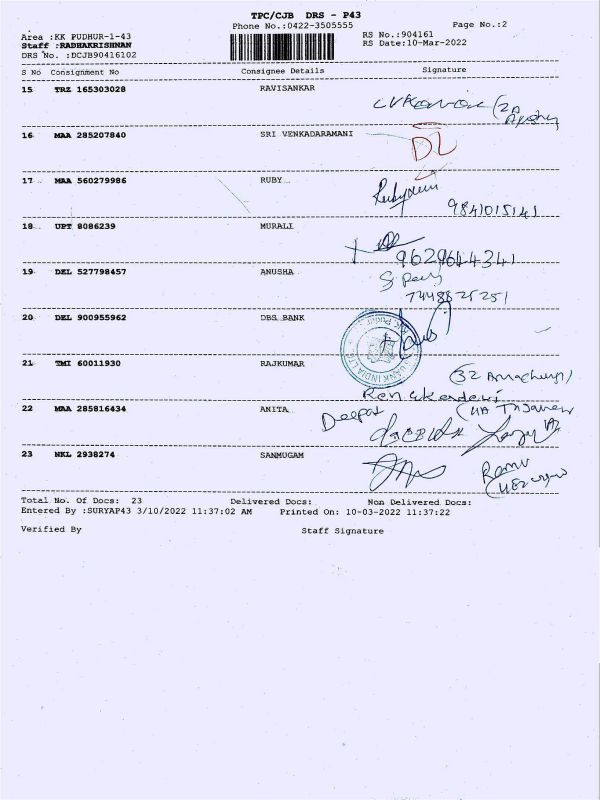 TPC/CJB DRS - P43
Phone No.:0422-3505555 Page No.:2
Area :KK PUDHUR-1-43 RS No.:904161
Staff :RADHAKRISHNAN RS Date:10-Mar-2022
DRS No. :DCJB90416102
S No Consignment No Consignee Details Signature
15 TRZ 165303028 RAVISANKAR
16 MAA 285207840 SRI VENKADARAMANI
DL
17 MAA 560279986 RUBY
9841015141
18 UPT 8086239 MURALI
9629614341
19 DEL 527798457 ANUSHA
20 DEL 900955962 DBS BANK
21 TMI 60011930 RAJKUMAR
22 MAA 285816434 ANITA
Deepas
23 NKL 2938274 SANMUGAM
Ramu
Total No. Of Docs: 23 Delivered Docs: Non Delivered Docs:
Entered By :SURYAP43 3/10/2022 11:37:02 AM Printed On: 10-03-2022 11:37:22
Verified By Staff Signature